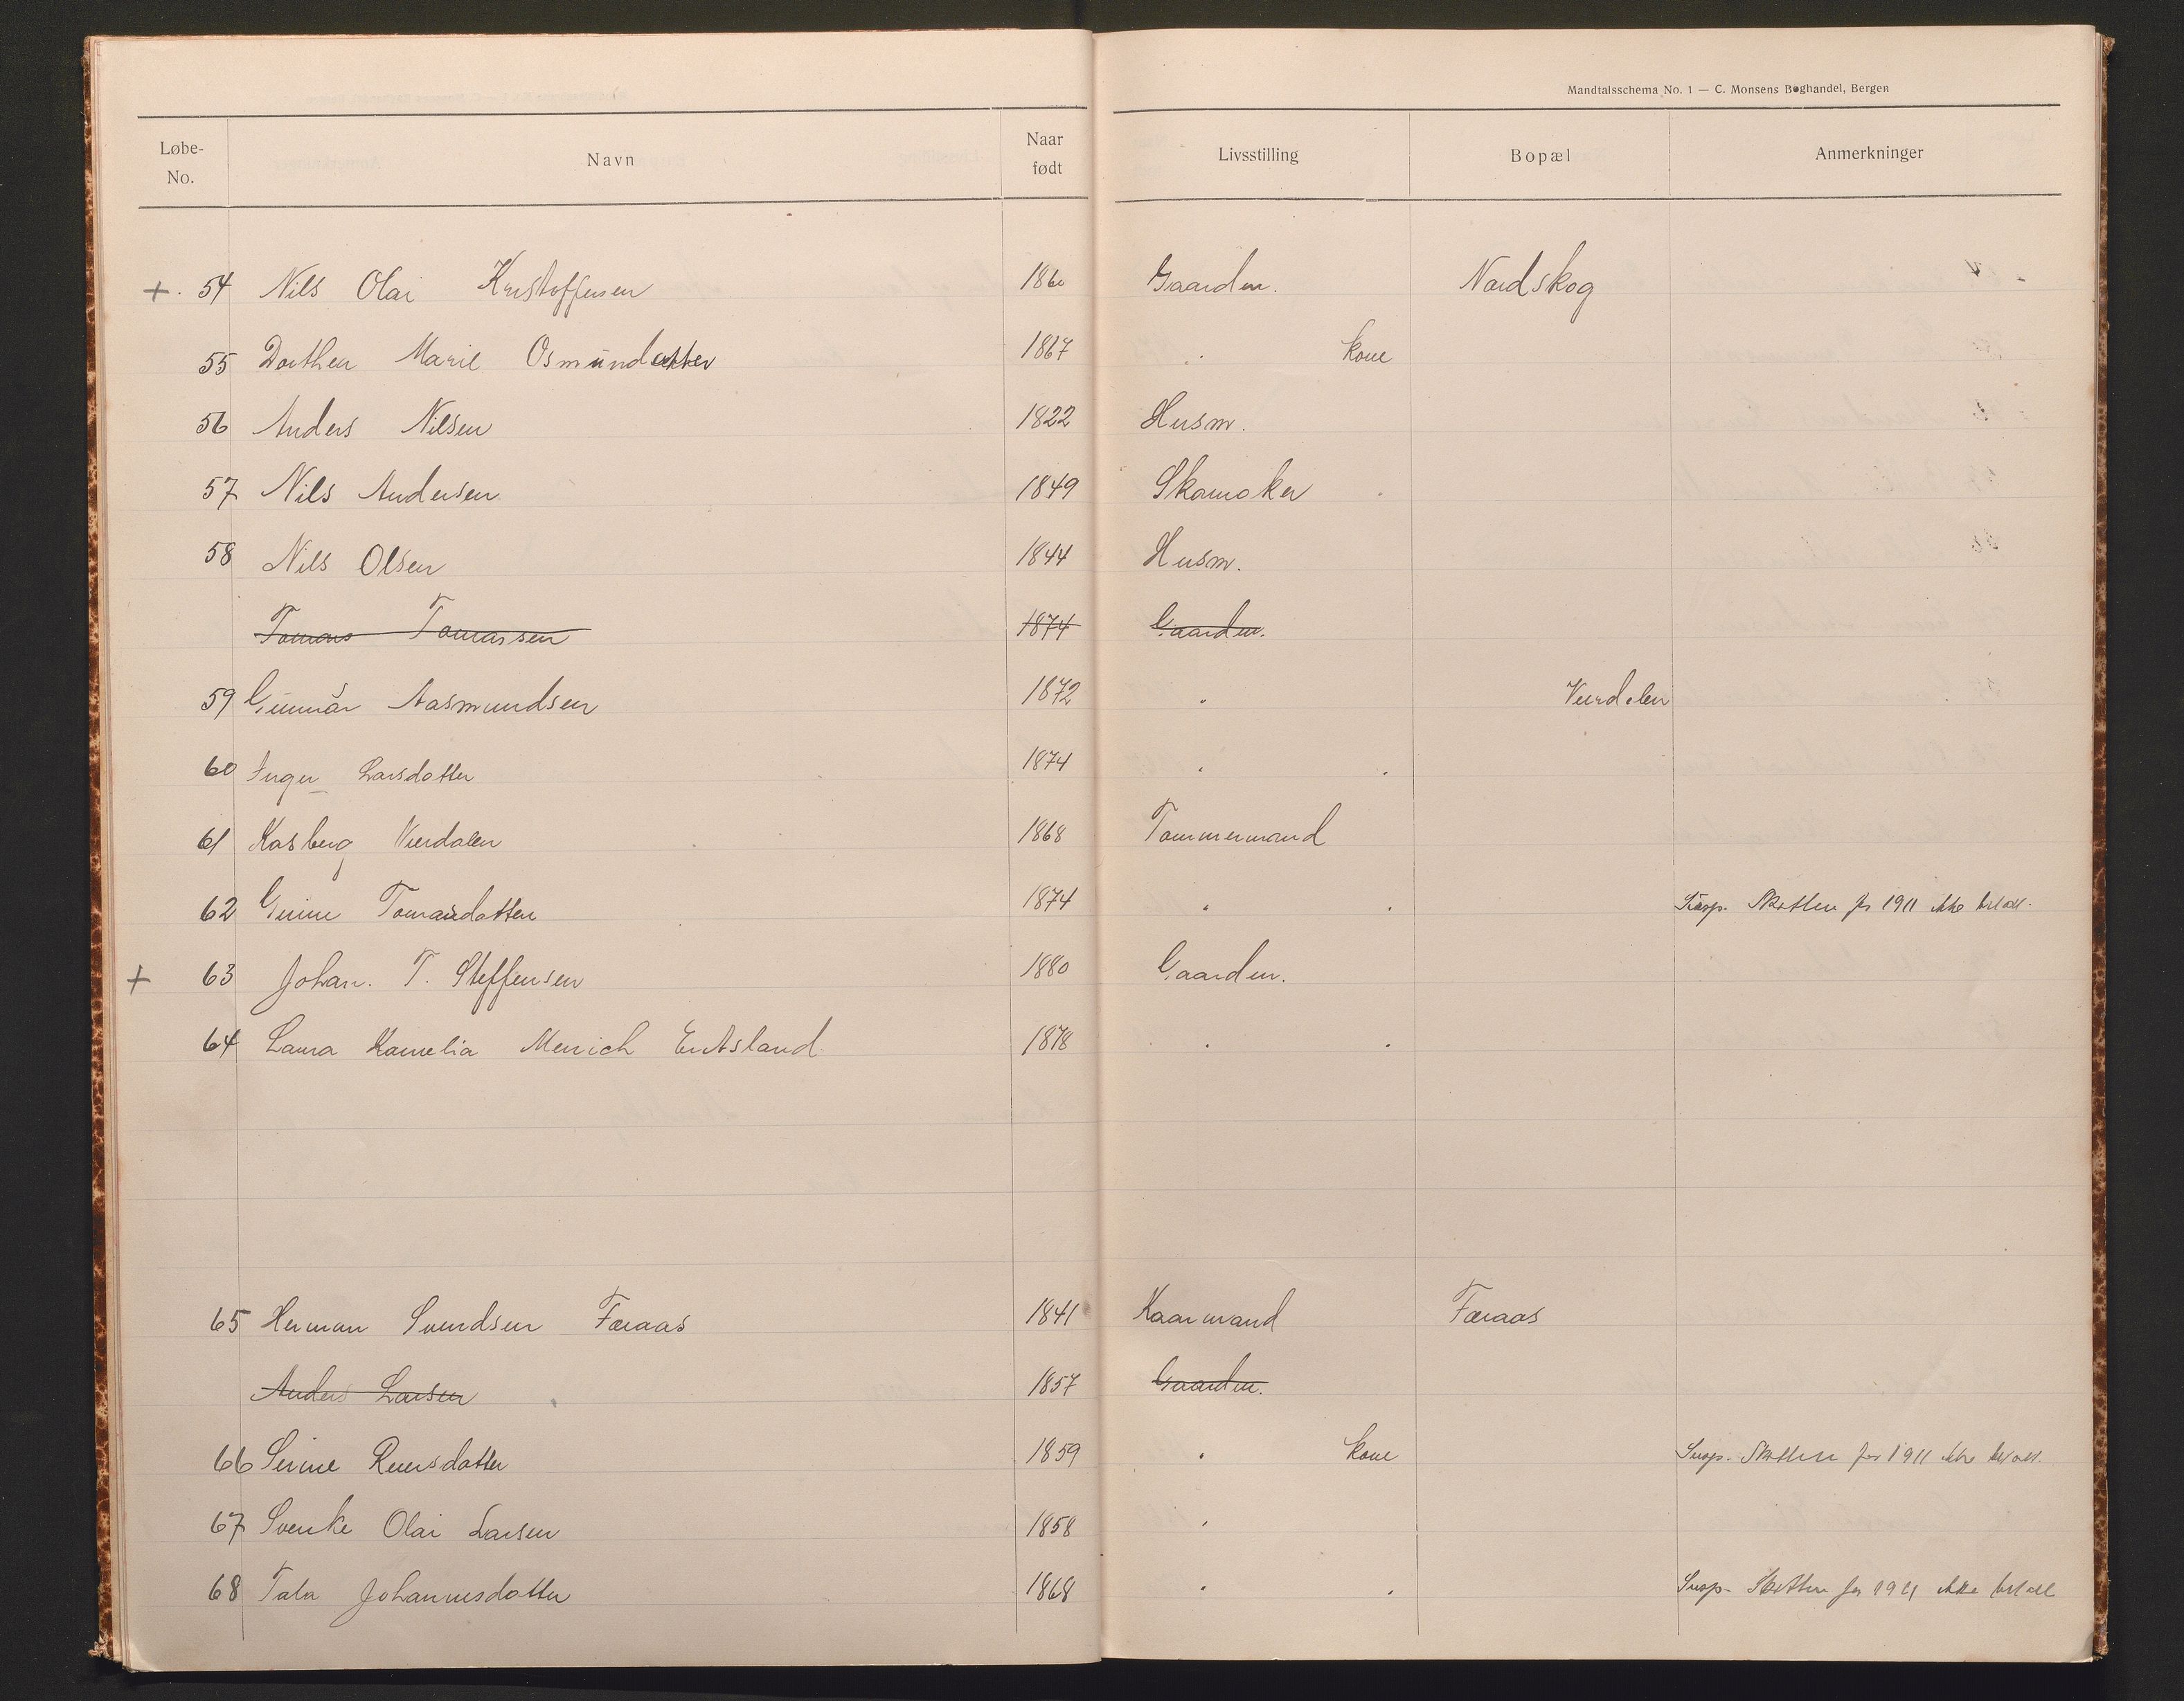 Mandtalsschema No. 1 — C. Monsens Boghandel, Bergen
Løbe-No. Navn Naar født Livsstilling Bopæl Anmerkninger
+. 54 Nils Olai Kristoffersen 1860 Gaardm. Nordskog
55 Dorthea Marie Osmundatter 1867 " kone
56 Anders Nilsen 1822 Husm.
57 Nils Andersen 1849 Skomoker
58 Nils Olsen 1844 Husm.
Tomas Tomassen 1874 Gaardm.
59 Gunnar Aasmundsen 1872 " Verdalen
60 Inger Larsdotter 1874 " "
61 Kasberg Verdalen 1868 Tommermand
62 Tomasdotter 1874 " " Susp. Skatten for 1911 ikke betalt.
+ 63 Johan. T. Steffensen 1880 Gaardm.
64 Laura Kornelia 1878 " "
65 Herman Svendsen Færaas 1841 Kaarmand Færaas
Anders Larsen 1857 Gaardm.
66 Serine Reiersdatter 1859 " kone Susp. Skatten for 1911 ikke betalt.
67 Svenke Olai Larsen 1858 "
68 Tala Johannesdatter 1868 " " Susp. Skatten for 1911 ikke betalt